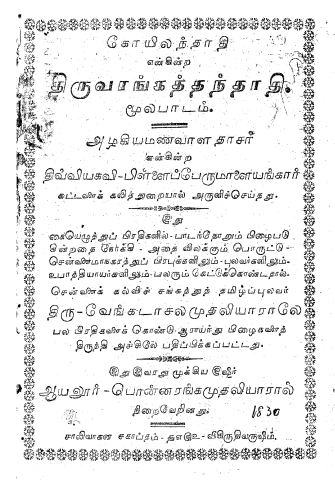 கோயிலந்தாதி
என்கின்ற
திருவரங்கத்தந்தாதி.
மூலபாடம்.
அழகியமணவாள தாசர்
என்கின்ற
திவ்வியகவி-பிள்ளைப்பெருமாளையங்கார்
கட்டளைக் கலித்துறையால் அருளிச்செய்தது.
இது
கையெழுத்துப் பிரதிகளில்-பாடந்தோறும் பிழைபடு
கின்றதை நோக்கி - அதை விலக்கும் பொருட்டு -
சென்னைமாகரத்துப் பிரபுக்களிலும்-புலவர்களிலும்-
உபாத்தியாயர்களிலும்-பலரும் கேட்டுக்கொண்டதால்.
சென்னைக் கல்விச் சங்கத்துத் தமிழ்ப்புலவர்
திரு-வேங்கடாசலமுதலியாராலே
பல பிரதிகளைக் கொண்டு-ஆராய்ந்து பிழைகளைத்
திருத்தி அச்சிலே பதிப்பிக்கப்பட்டது.
இது இவரது முக்கிய இஷ்டர்
ஆயனூர்-பொன்னரங்கமுதலியாரால்
நிறைவேறினது. 1830
சாலிவாகன சகாப்தம்-விகிருதிவருஷம்.